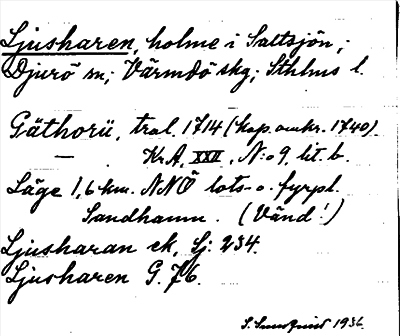 Ljusharen, holme i Saltsjön,;
Djurö sn; Värmdö skg; Sthlms l.
Gäthorü, tral. 1714 (kop. omkr. 1740)
— Kr. A, XXII, N:o 9, lit. b.
Läge 1,6 km. NNÖ lots- o. fyrpl.
Sandhamn. (Vänd!)
Ljusharan ek, Sj: 234.
Ljusharen G. 76.
S. Sundqvist 1936